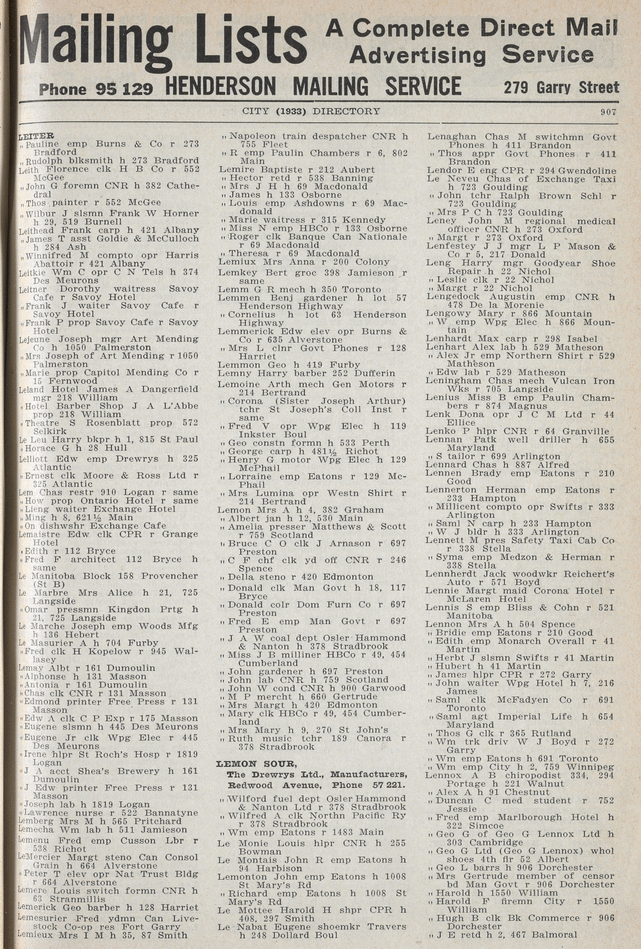 Mailing Lists
A Complete Direct Mail
Advertising Service
Phone 95 129 HENDERSON MAILING SERVICE 279 Garry Street
CITY (1933) DIRECTORY 907
LEITER
„ Pauline emp Burns & Co r 273
Bradford
„ Rudolph blksmith h 273 Bradford
Leith Florence clk H B Co r 552
McGee
„ John G foremn CNR h 382 Cathe-
dral
„ Thos painter r 552 McGee
„ Wilbur J slsmn Frank W Horner
h 29, 519 Burnell
Leithead Frank carp h 421 Albany
„ James T asst Goldie & McCulloch
h 284 Ash
„ Winnifred M compto opr Harris
Abattoir r 421 Albany
Leitkie Wm C opr C N Tels h 374
Des Meurons
Leitner Dorothy waitress Savoy
Cafe r Savoy Hotel
„ Frank J waiter Savoy Cafe r
Savoy Hotel
„ Frank P prop Savoy Cafe r Savoy
Hotel
Lejeune Joseph mgr Art Mending
Co h 1050 Palmerston
„ Mrs Joseph of Art Mending r 1050
Palmerston
„ Marie prop Capitol Mending Co r
15 Fernwood
Leland Hotel James A Dangerfield
mgr 218 William
„ Hotel Barber Shop J A L'Abbe
prop 218 William
„ Theatre S Rosenblatt prop 572
Selkirk
Le Leu Harry bkpr h 1, 815 St Paul
„ Horace G h 28 Hull
Lelliott Edw emp Drewrys h 325
Atlantic
„ Ernest clk Moore & Ross Ltd r
325 Atlantic
Lem Chas restr 910 Logan r same
„ How prop Ontario Hotel r same
„ Lieng waiter Exchange Hotel
„ Ming h 8, 621½ Main
„ On dishwshr Exchange Cafe
Lemaistre Edw clk CPR r Grange
Hotel
„ Edith r 112 Bryce
„ Fred F architect 112 Bryce r
same
Le Manitoba Block 158 Provencher
(St B)
Le Marbre Mrs Alice h 21, 725
Langside
„ Omar pressmn Kingdon Prtg h
21, 725 Langside
Le Marche Joseph emp Woods Mfg
h 136 Hebert
Le Masurier A h 704 Furby
„ Fred clk H Kopelow r 945 Wal-
lasey
Lemay Albt r 161 Dumoulin
„ Alphonse h 131 Masson
„ Antonia r 161 Dumoulin
„ Chas clk CNR r 131 Masson
„ Edmond printer Free Press r 131
Masson
„ Edw A clk C P Exp r 175 Masson
„ Eugene slsmn h 445 Des Meurons
„ Eugene Jr clk Wpg Elec r 445
Des Meurons
„ Irene hlpr St Roch's Hosp r 1819
Logan
„ J A acct Shea's Brewery h 161
Dumoulin
„ J Edw printer Free Press r 131
Masson
„ Joseph lab h 1819 Logan
„ Lawrence nurse r 522 Bannatyne
Lemberg Mrs M h 565 Pritchard
Lemecha Wm lab h 511 Jamieson
Lemenu Fred emp Cusson Lbr r
538 Richot
LeMercier Margt steno Can Consol
Grain h 664 Alverstone
„ Peter T elev opr Nat Trust Bldg
r 664 Alverstone
Lemere Louis switch formn CNR h
63 Stranmillis
Lemerick Geo barber h 128 Harriet
Lemesurier Fred ydmn Can Live-
stock Co-op res Fort Garry
Lemieux Mrs I M h 35, 87 Smith
„ Napoleon train despatcher CNR h
755 Fleet
„ R emp Paulin Chambers r 6, 802
Main
Lemire Baptiste r 212 Aubert
„ Hector retd r 538 Banning
„ Mrs J H h 69 Macdonald
„ James h 133 Osborne
„ Louis emp Ashdowns r 69 Mac-
donald
„ Marie waitress r 315 Kennedy
„ Miss N emp HBCo r 133 Osborne
„ Roger clk Banque Can Nationale
r 69 Macdonald
„ Theresa r 69 Macdonald
Lemiux Mrs Anna r 200 Colony
Lemkey Bert groc 398 Jamieson r
same
Lemm G R mech h 350 Toronto
Lemmen Benj gardener h lot 57
Henderson Highway
„ Cornelius h lot 63 Henderson
Highway
Lemmerick Edw elev opr Burns &
Co r 635 Alverstone
„ Mrs L clnr Govt Phones r 128
Harriet
Lemmon Geo h 419 Furby
Lemny Harry barber 252 Dufferin
Lemoine Arth mech Gen Motors r
214 Bertrand
„ Corona (Sister Joseph Arthur)
tchr St Joseph's Coll Inst r
same
„ Fred V opr Wpg Elec h 119
Inkster Boul
„ Geo constn formn h 533 Perth
„ George carp h 481½ Richot
„ Henry G motor Wpg Elec h 129
McPhail
„ Lorraine emp Eatons r 129 Mc-
Phail
„ Mrs Lumina opr Westn Shirt r
214 Bertrand
Lemon Mrs A h 4, 382 Graham
„ Albert jan h 12, 530 Main
„ Amelia presser Matthews & Scott
r 759 Scotland
„ Bruce C O clk J Arnason r 697
Preston
„ C F chf clk yd off CNR r 246
Spence
„ Della steno r 420 Edmonton
„ Donald clk Man Govt h 18, 117
Bryce
„ Donald colr Dom Furn Co r 697
Preston
„ Fred E emp Man Govt r 697
Preston
„ J A W coal dept Osler Hammond
& Nanton h 378 Stradbrook
„ Miss J B milliner HBCo r 49, 454
Cumberland
„ John gardener h 697 Preston
„ John lab CNR h 759 Scotland
„ John W cond CNR h 900 Garwood
„ M P mercht h 660 Gertrude
„ Mrs Margt h 420 Edmonton
„ Mary clk HBCo r 49, 454 Cumber-
land
„ Mrs Mary h 9, 270 St John's
„ Ruth music tchr 189 Canora r
378 Stradbrook
LEMON SOUR,
The Drewrys Ltd., Manufacturers,
Redwood Avenue, Phone 57 221.
„ Wilford fuel dept Osler Hammond
& Nanton Ltd r 378 Stradbrook
„ Wilfred A clk Northn Pacific Ry
r 378 Stradbrook
„ Wm emp Eatons r 1483 Main
Le Monie Louis hlpr CNR h 255
Bowman
Le Montais John R emp Eatons h
94 Harbison
Lemonton John emp Eatons h 1008
St Mary's Rd
„ Richard emp Eatons h 1008 St
Mary's Rd
Le Mottee Harold H shpr CPR h
408, 297 Smith
Le Nabat Eugene shoemkr Travers
h 248 Dollard Boul
Lenaghan Chas M switchmn Govt
Phones h 411 Brandon
„ Thos appr Govt Phones r 411
Brandon
Lendor E eng CPR r 294 Gwendoline
Le Neveu Chas of Exchange Taxi
h 723 Goulding
„ John tchr Ralph Brown Schl r
723 Goulding
„ Mrs P C h 723 Goulding
Leney John M regional medical
officer CNR h 273 Oxford
„ Margt r 273 Oxford
Lenfestey J J mgr L P Mason &
Co r 5, 217 Donald
Leng Harry mgr Goodyear Shoe
Repair h 22 Nichol
„ Leslie clk r 22 Nichol
„ Margt r 22 Nichol
Lengedock Augustin emp CNR h
478 De la Morenie
Lengowy Mary r 866 Mountain
„ W emp Wpg Elec h 866 Moun-
tain
Lenhardt Max carp r 298 Isabel
Lenhart Alex lab h 529 Matheson
„ Alex Jr emp Northern Shirt r 529
Matheson
„ Edw lab r 529 Matheson
Leningham Chas mech Vulcan Iron
Wks r 705 Langside
Lenius Miss B emp Paulin Cham-
bers r 874 Magnus
Lenk Dona opr J C M Ltd r 44
Ellice
Lenko P hlpr CNR r 64 Granville
Lennan Patk well driller h 655
Maryland
„ S tailor r 699 Arlington
Lennard Chas h 887 Alfred
Lennen Brady emp Eatons r 210
Good
Lennerton Herman emp Eatons r
233 Hampton
„ Millicent compto opr Swifts r 333
Arlington
„ Saml N carp h 233 Hampton
„ W J bldr h 333 Arlington
Lennett M pres Safety Taxi Cab Co
r 338 Stella
„ Syma emp Medzon & Herman r
338 Stella
Lennherdt Jack woodwkr Reichert's
Auto r 571 Boyd
Lennie Margt maid Corona Hotel r
McLaren Hotel
Lennis S emp Bliss & Cohn r 521
Manitoba
Lennon Mrs A h 504 Spence
„ Bridie emp Eatons r 210 Good
„ Edith emp Monarch Overall r 41
Martin
„ Herbt J slsmn Swifts r 41 Martin
„ Hubert h 41 Martin
„ James hlpr CPR r 272 Garry
„ John waiter Wpg Hotel h 7, 216
James
„ Saml clk McFadyen Co r 691
Toronto
„ Saml agt Imperial Life h 654
Maryland
„ Thos G clk r 365 Rutland
„ Wm trk driv W J Boyd r 272
Garry
„ Wm emp Eatons h 691 Toronto
„ Wm emp City h 2, 759 Winnipeg
Lennox A B chiropodist 334, 294
Portage h 221 Walnut
„ Alex A h 91 Chestnut
„ Duncan C med student r 752
Jessie
„ Fred emp Marlborough Hotel h
322 Simcoe
„ Geo G of Geo G Lennox Ltd h
303 Cambridge
„ Geo G Ltd (Geo G Lennox) whol
shoes 4th flr 52 Albert
„ Geo L barrs h 906 Dorchester
„ Mrs Gertrude member of censor
bd Man Govt r 906 Dorchester
„ Harold h 1550 William
„ Harold F diremn City r 1550
William
„ Hugh B clk Bk Commerce r 906
Dorchester
„ J E retd h 2, 467 Balmoral